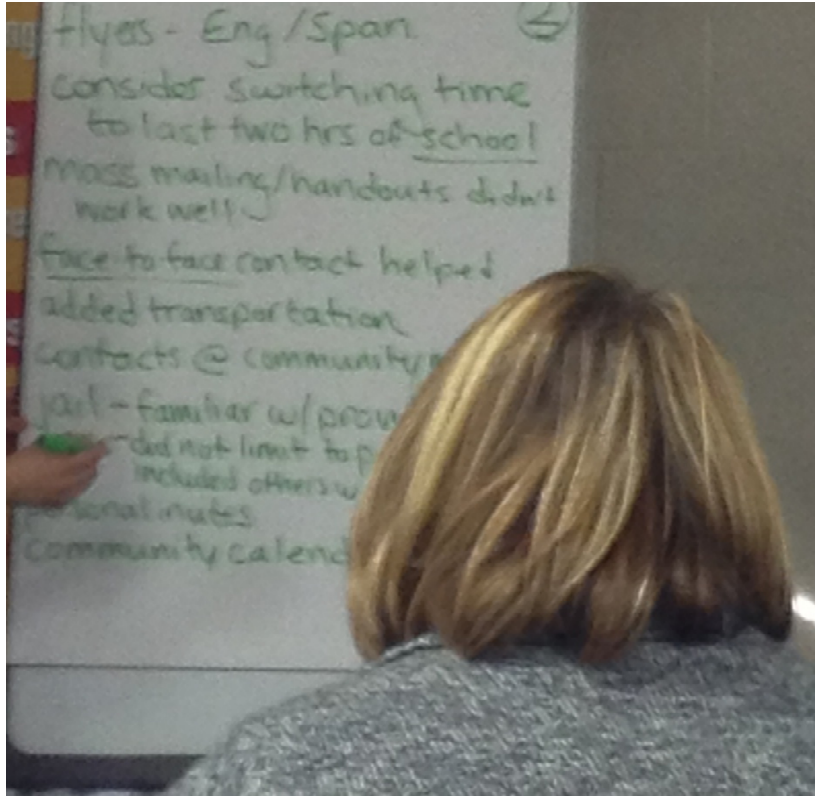 flyers - Eng/Span
2
consider switching time
to last two hrs of school
mass mailing/handouts didn't
work well
face to face contact helped
added transportation
contacts @ community/
jail - familiar w/
- did not limit to
included others w
personal invites
community